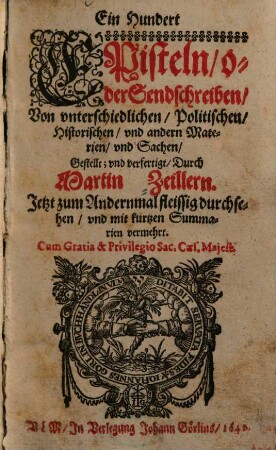 Ein Hundert
EPisteln/ o-
der Sendschreiben/
Von vnterschiedlichen/ Politischen/
Historischen/ vnd andern Mate-
rien/ vnd Sachen/
Gestellt; vnd verfertigt/ Durch
Martin Zeillern.
Jetzt zum Andernmal fleissig durchse-
hen/ vnd mit kurtzen Summa-
rien vermehrt.
Cum Gratia & Privilegio Sac. Cæs. Majest.
VLM/ In Verlegung Johann Görlins/